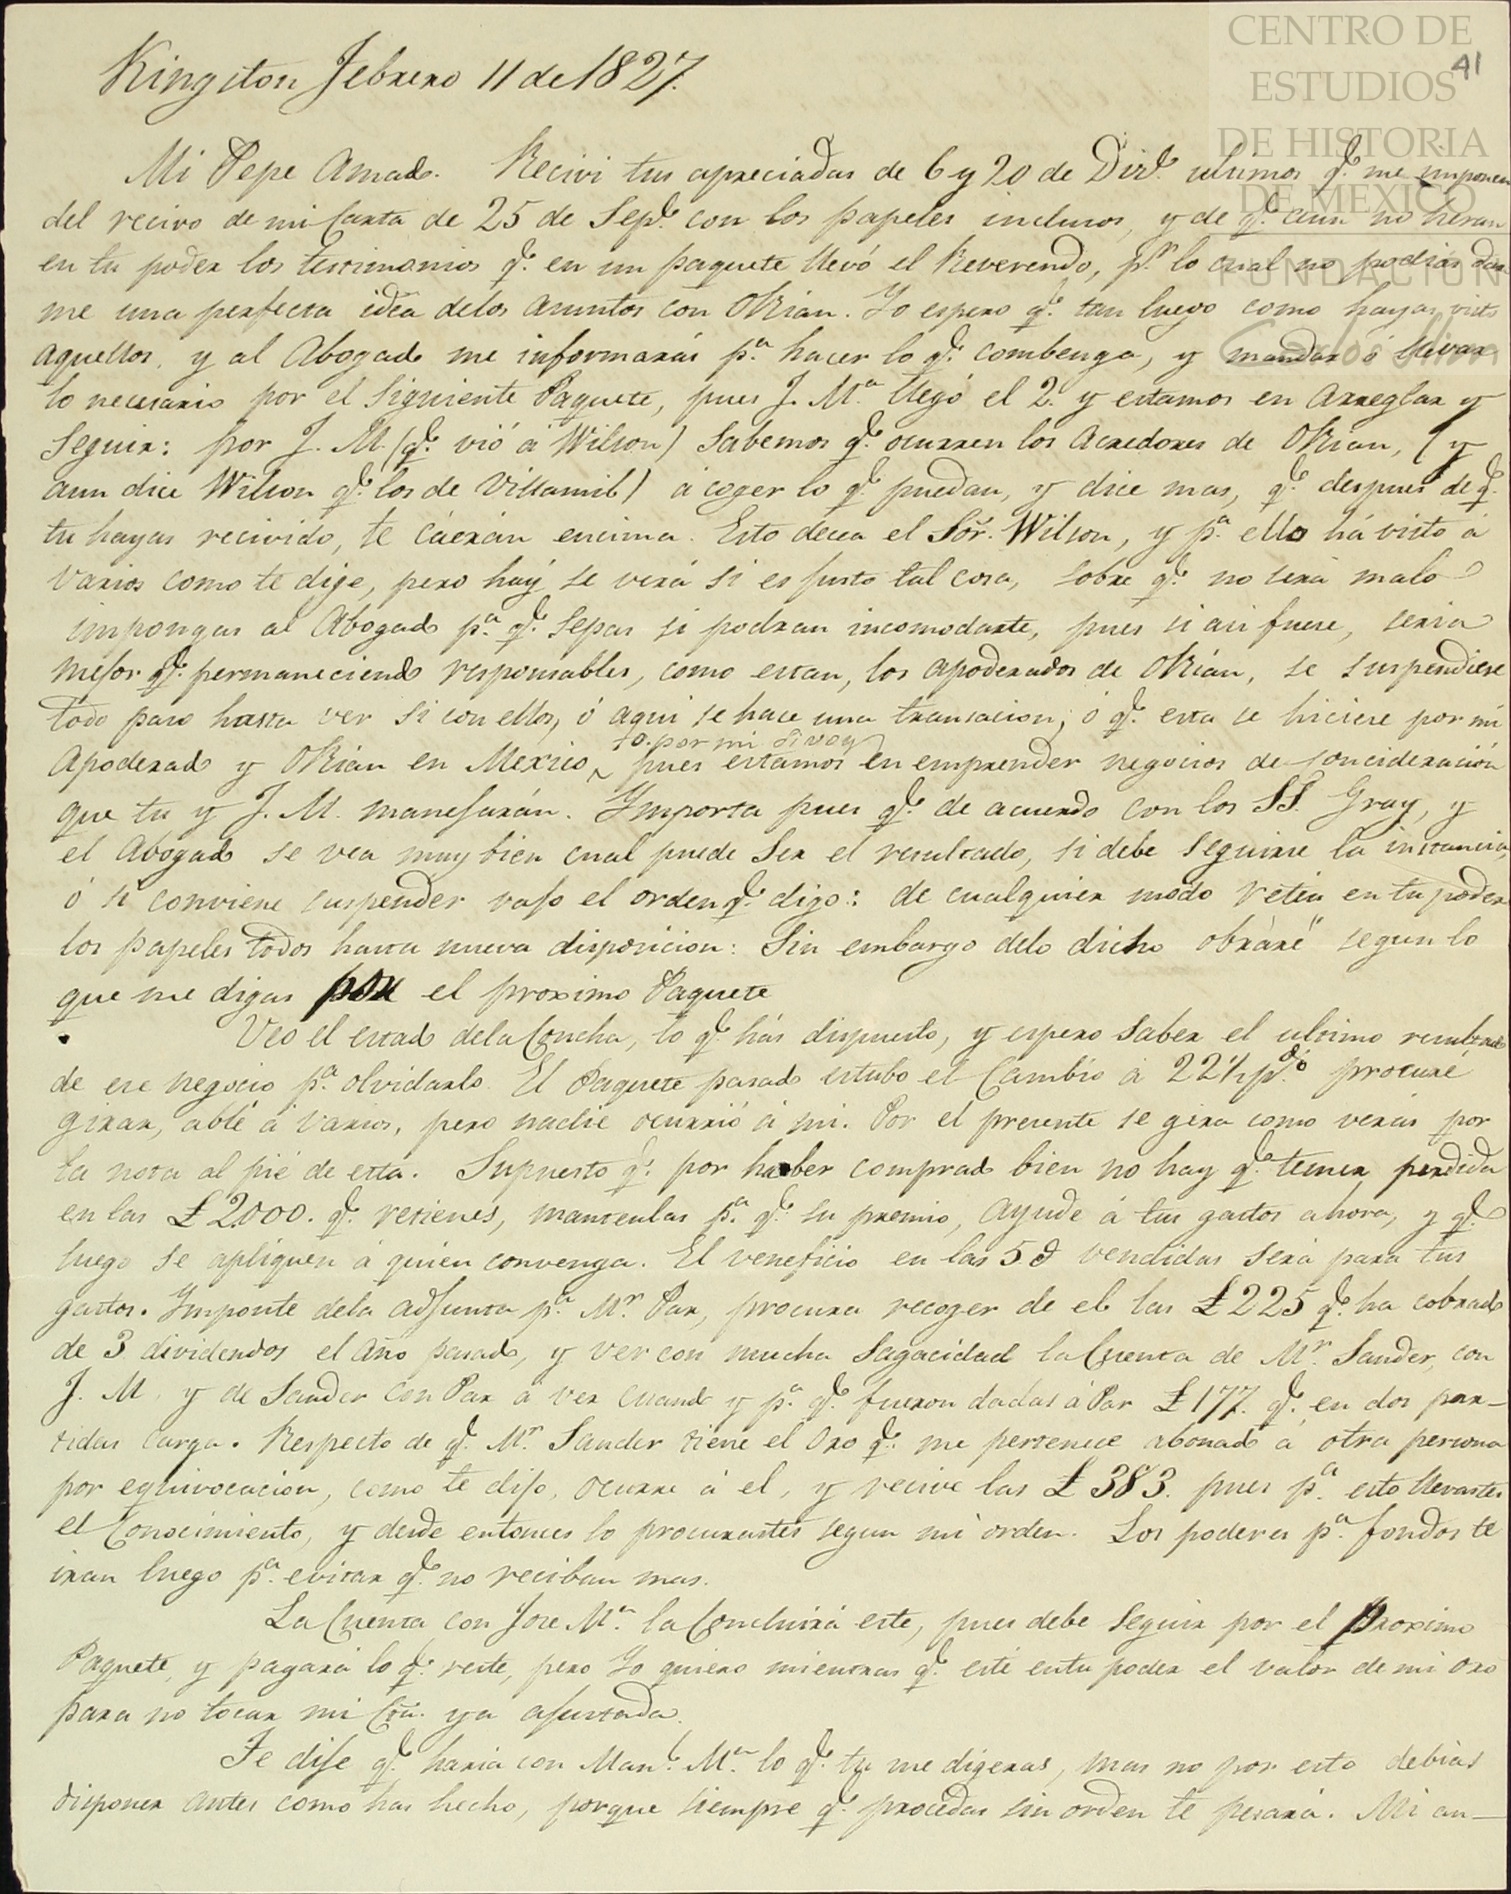 CENTRO DE
ESTUDIOS
DE HISTORIA
DE MEXICO
FUNDACIÓN
Carlos Slim
41
Kingston Febrero 11 de 1827.
Mi Pepe Amado. Recivi tus apreciadas de 6 y 20 de Dizê. ultimos qê. me imponen
del recivo de mi Carta de 25 de Sepê. con los papeles inclusos, y de qê. aun no heran
en tu poder los testimonios qê. en un paquete llevó el Reverendo, pr. lo cual no podias dar-
me una perfecta idea delos asuntos con ORian. Yo espero qê. tan luego como hayas visto
aquellos, y al Abogado me informarás pa. hacer lo qê. combenga, y mandar ó llevar
lo necesario por el siguiente Paquete, pues J. Ma. llegó el 2. y estamos en Arreglar y
Seguir: por J. M. (qê. vió á Wilson) Sabemos qê. ocurren los Acredores de ORian, (y
aun dice Wilson qê. los de Villamil) á coger lo qê. puedan, y dice mas, qê. despues de qê.
tu hayas recivido, te cáerán encima. Esto decea el Sor. Wilson, y pa. ello há visto á
varios como te dige, pero háy se verá si es justo tal cosa, sobre qê. no sera malo
impongas al Abogado pa. qê. sepas si podran incomodarte, pues si asi fuere, seria
mejor qê. permaneciendo responsables, como estan, los apoderados de ORián, se suspendiese
todo paso hasta ver si con ellos, ó aqui se hace una transacion, ó qê. esta se hiciese por mi
Apoderado y ORian en Mexico, pues estamos en emprender negocios de concideración
ó por mi si voy
que tu y J. M. manejarán. Ymporta pues qê. de acuerdo con los SS. Gray, y
el Abogado se vea muy bien cual puede ser el resultado, si debe seguirse la instancia,
ó si conviene suspender vajo el orden qê. digo: de cualquier modo reten en tu poder
los papeles todos hasta nueva disposicion: Sin embargo delo dicho obráré segun lo
que me digas por el proximo Paquete
Veo el estado dela Concha, lo qê. hás dispuesto, y espero saber el ultimo resultado
de ese negocio pa. olvidarlo. El Paquete pasado estubo el Cambio á 22½ p%. procuré
girar, ablé á varios, pero nadie ocurrió á mi. Por el presente se gira como verás por
la nota al pié de esta. Supuesto qê. por haber comprado bien no hay qê. temer perdida
en las £2000. qê. retienes, mantenlas pa. qê. su premio, ayude á tus gastos ahora, y qê.
luego se apliquen á quien convenga. El veneficio en las 5 vendidas será para tus
gastos. Ymponte dela adjunta pa. Mr. Par, procura recoger de el las £225 qê. ha cobrado
de 3 dividendos el Año pasado, y ver con mucha Sagacidad la Cuenta de Mr. Sander, con
J. M. y de Sander con Par á ver cuando y pa. qê. fueron dadas á Par £177. qê. en dos par-
tidas carga. Respecto de qê. Mr. Sander tiene el Oro qê. me pertenece abonado á otra persona
por equivocacion, como te dijo, ocurre á el, y recive las £383. pues pa. esto llevastes
el Conocimiento, y desde entonces lo procurastes segun mi orden. Los poderes pa. fondos te
iran luego pa. evitar qê. no reciban mas.
La Cuenta con Jose Ma. la Concluirá este, pues debe seguir por el Proximo
Paquete, y pagará lo qê. reste, pero Yo quiero mientras qê. esté en tu poder el valor de mi oro
para no tocar mi Cta. ya ajustada.
Te dije qê. haria con Manl. Ma. lo qê. tu me digeras, mas no por esto debias
disponer antes como has hecho, porque siempre qê. procedas sin orden te pesará. Mi an-